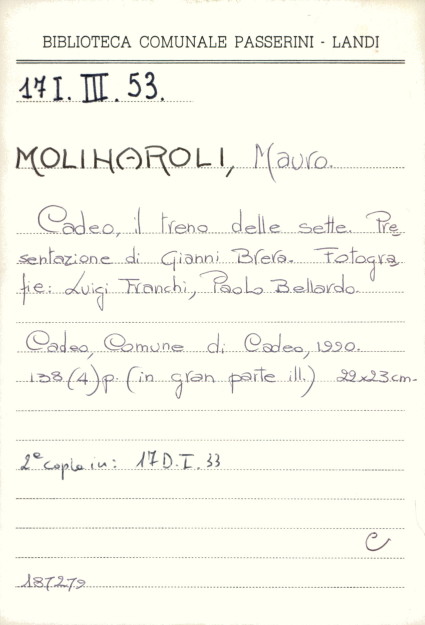 BIBLIOTECA COMUNALE PASSERINI - LANDI
17 I. III. 53.
MOLINAROLI, Mauro.
Cadeo, il treno delle sette. Pre
sentazione di Gianni Brera. Fotogra
fie: Luigi Franchi, Paolo Bellardo.
Cadeo, Comune di Cadeo, 1990.
138 (4) p. (in gran parte ill.) 22x23 cm.
2ª copia in: 17 D. I. 33
C
187279